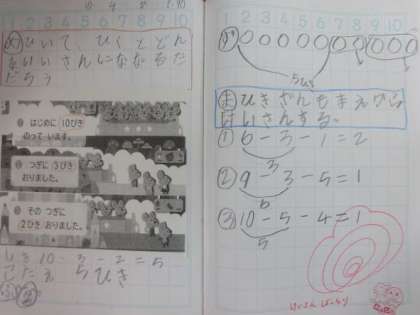 め ひいて、ひくとどん
ないいさんになるだ
だろう
はじめに 10ぴき
のって います。
つぎに 3びき
おりました。
その つぎに
2ひき おりました。
しき 10-3-2=5
こたえ 5ひき
1 2 3 4 5 6 7 8 9 10
5ひき
ま ひきざんもまえから
けいさんする。
① 6-3-1=2
3
② 9-3-5=1
6
③ 10-5-4=1
5
けいさん ばっちり